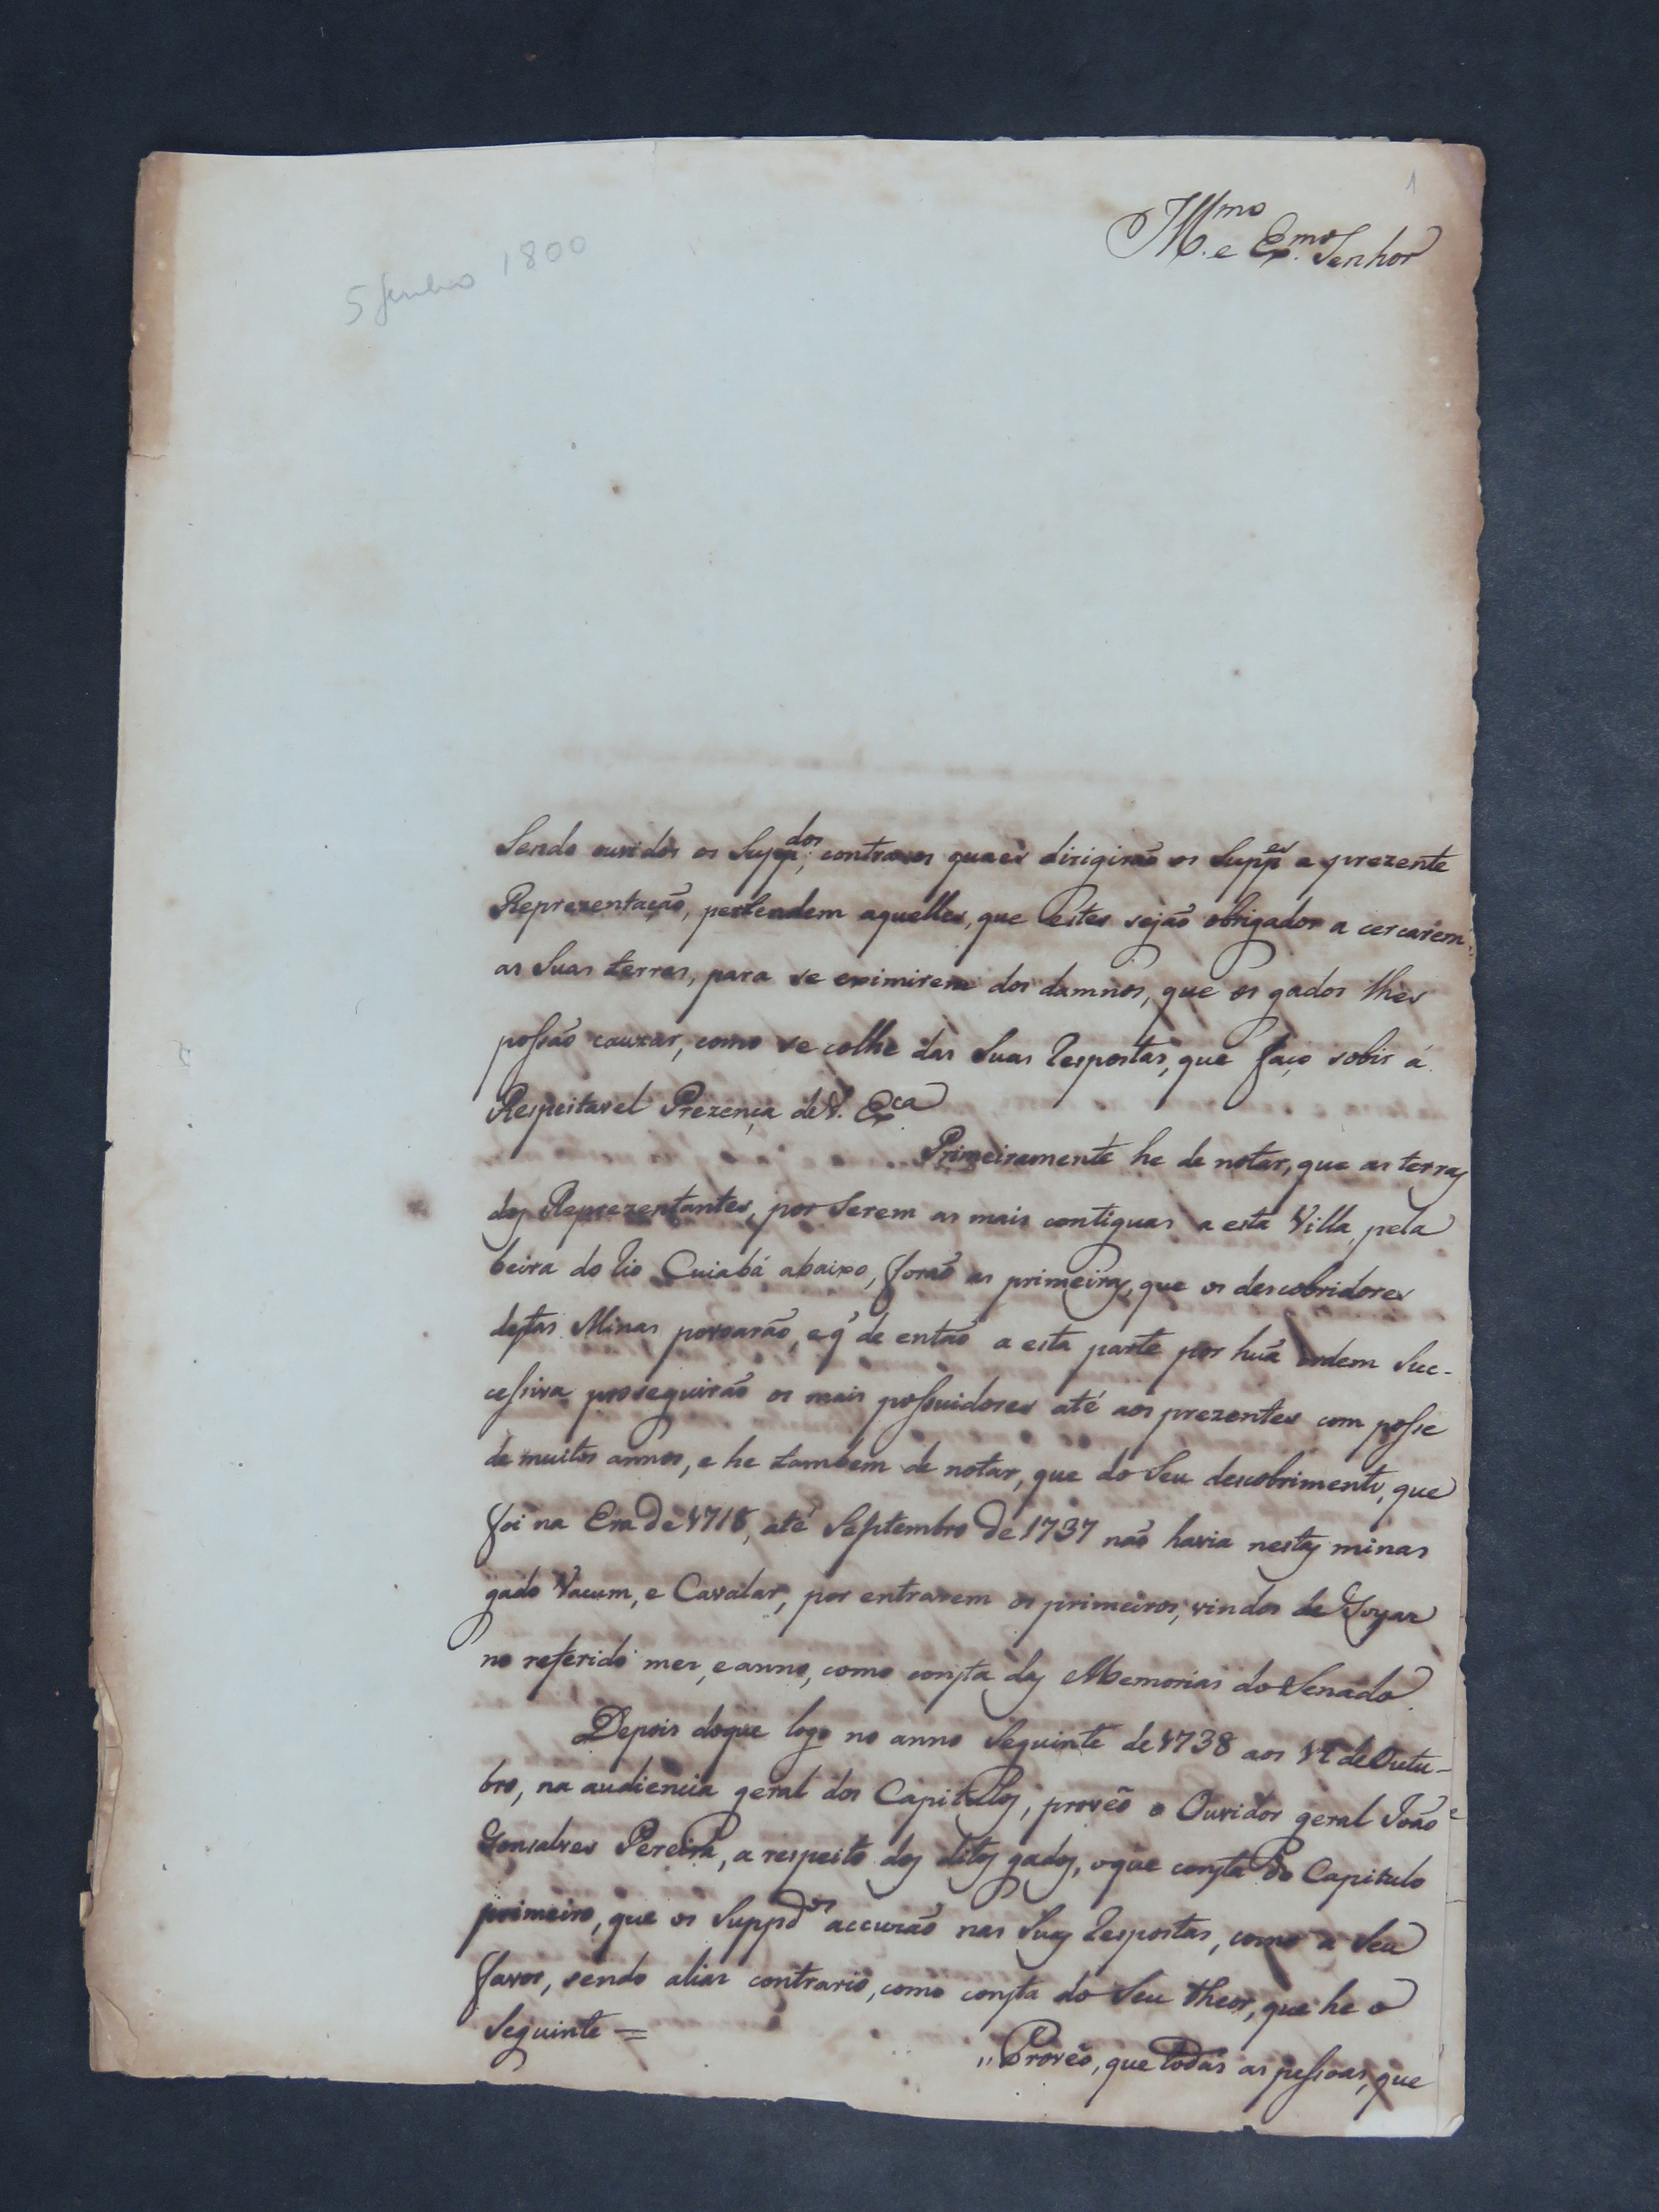 1
Ill.mo e Ex.mo Senhor
5 Junho 1800
Sendo ouvidos os Supp.dos, contra os quaes dirigirão os Supp.es a prezente
Reprezentação, pertendem aquelles, que estes sejão obrigados a cercarem
as Suas terras, para se eximirem dos damnos, que os gados lhes
possão cauzar, como se colhe das Suas respostas, que faço sobir á
Respeitavel Prezença de V. Ex.ca
Primeiramente he de notar, que as terras
dos Reprezentantes, por serem as mais contiguas a esta Villa, pela
beira do rio Cuiabá abaixo, forão as primeiras, que os descobridores
destas Minas povoarão, e q̃ de então a esta parte por huã ordem Suc-
cessiva proseguirão os mais possuidores até aos prezentes com posse
de muitos annos, e he tambem de notar, que do Seu descobrimento, que
foi na Era de 1718, até Septembro de 1737 não havia nestas minas
gado Vacum, e Cavalar, por entrarem os primeiros, vindos de Goyaz
no referido mez, e anno, como consta das Memorias do Senado.
Depois do que logo no anno Seguinte de 1738 aos de Outu-
bro, na audiencia geral dos Capitulos, proveo o Ouvidor geral João
Gonsalves Pereira, a respeito dos ditos gados, o que consta do Capitulo
primeiro, que os Suppd.os accuzão nas Suas respostas, como a Seu
favor, sendo aliaz contrario, como consta do Seu theor, que he o
Seguinte =
"Proveo, que todas as pessoas, que